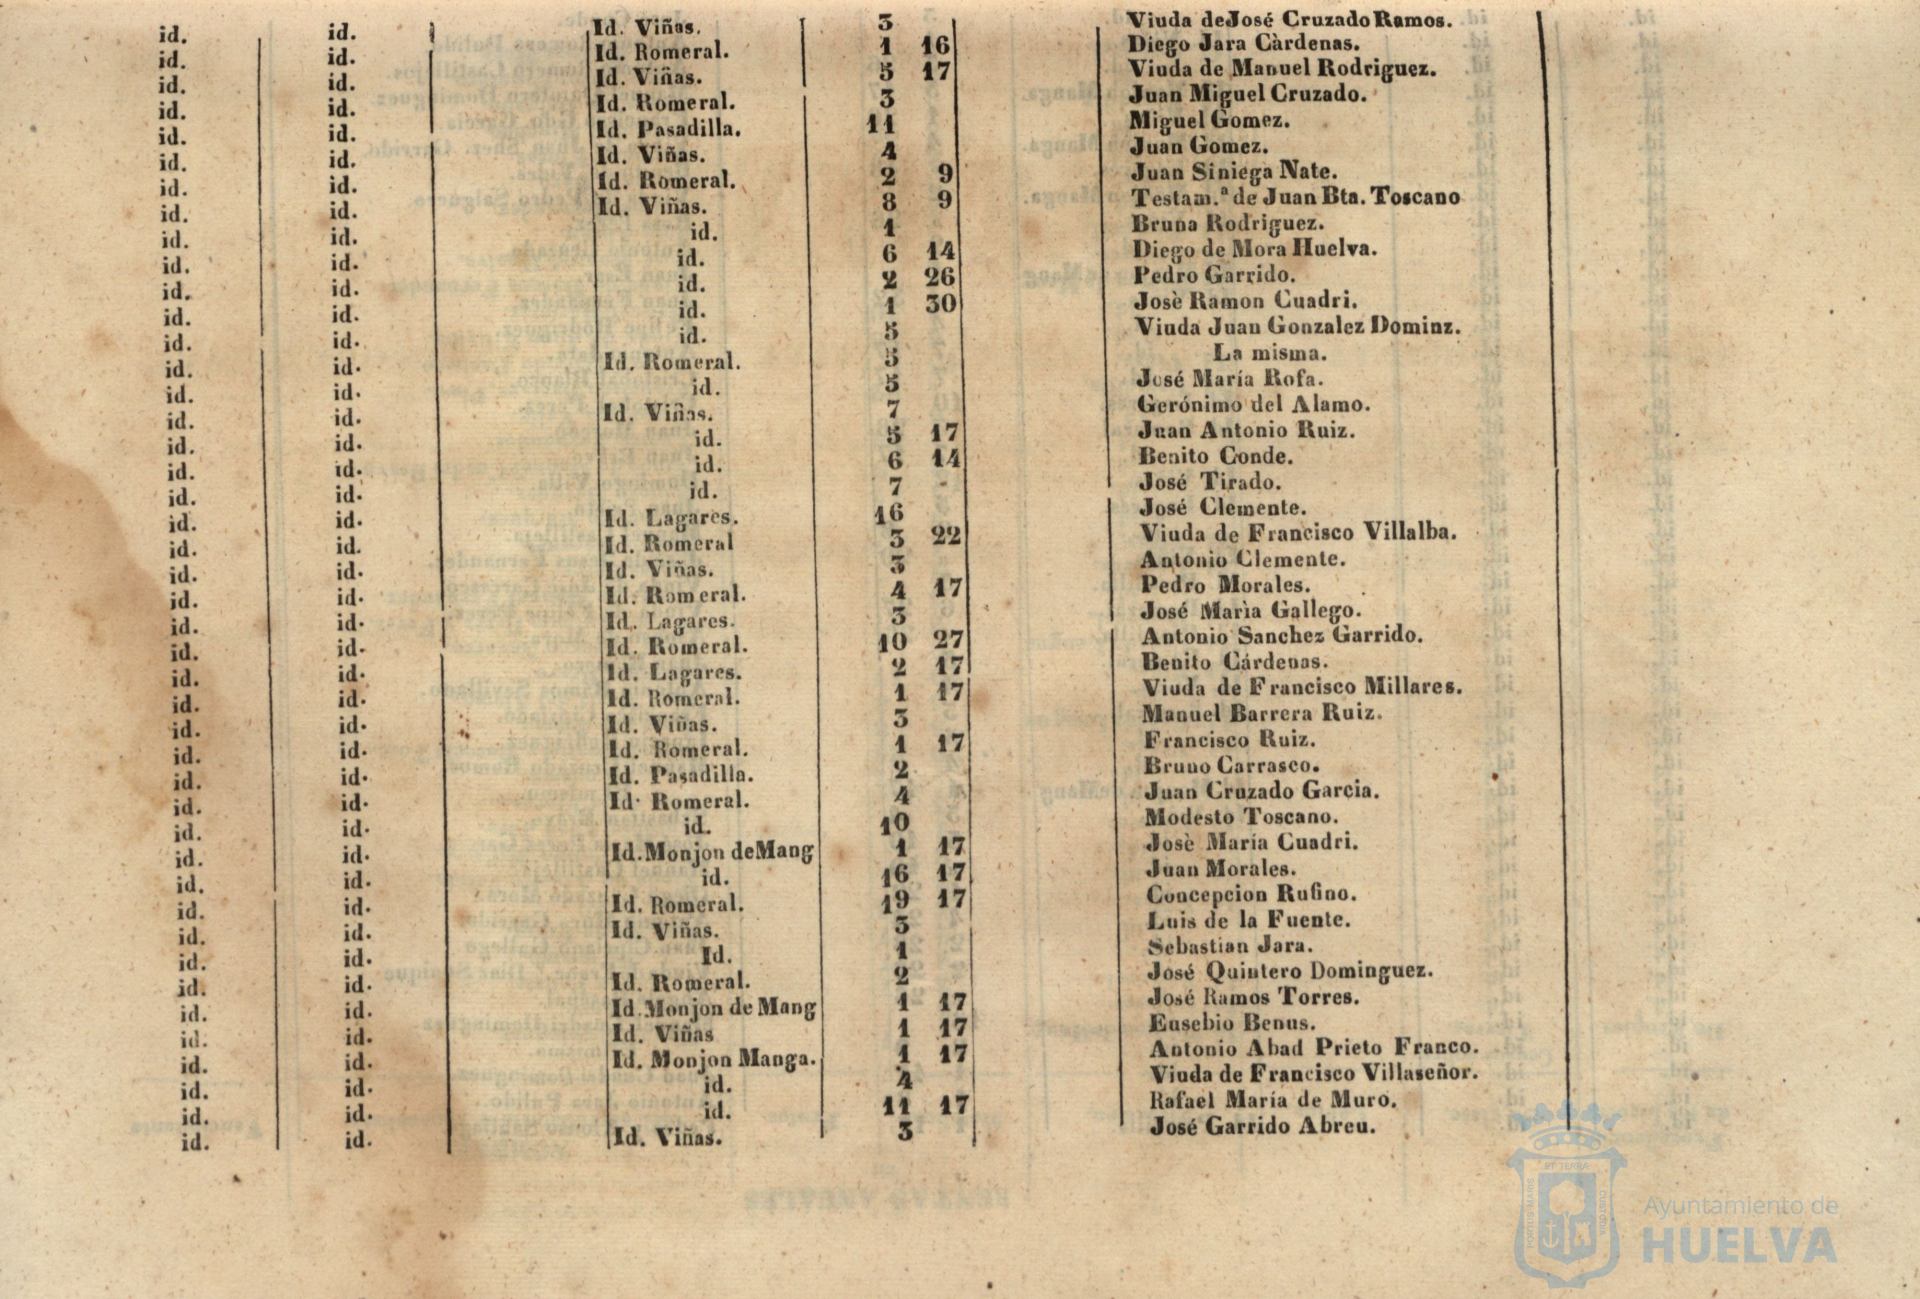 id. id. Id. Viñas. 3 Viuda de José Cruzado Ramos.
id. id. Id. Romeral. 1 16 Diego Jara Càrdenas.
id. id. Id. Viñas. 5 17 Viuda de Manuel Rodriguez.
id. id. Id. Romeral. 3 Juan Miguel Cruzado.
id. id. Id. Pasadilla. 11 Miguel Gomez.
id. id. Id. Viñas. 4 Juan Gomez.
id. id. Id. Romeral. 2 9 Juan Siniega Nate.
id. id. Id. Viñas. 8 9 Testam.ª de Juan Bta. Toscano
id. id. id. 1 Bruna Rodriguez.
id. id. id. 6 14 Diego de Mora Huelva.
id. id. id. 2 26 Pedro Garrido.
id. id. id. 1 30 Josè Ramon Cuadri.
id. id. id. 5 Viuda Juan Gonzalez Dominz.
id. id. Id. Romeral. 5 La misma.
id. id. id. 5 José María Rofa.
id. id. Id. Viñas. 7 Gerónimo del Alamo.
id. id. id. 5 17 Juan Antonio Ruiz.
id. id. id. 6 14 Benito Conde.
id. id. id. 7 José Tirado.
id. id. Id. Lagares. 16 José Clemente.
id. id. Id. Romeral 3 22 Viuda de Francisco Villalba.
id. id. Id. Viñas. 3 Antonio Clemente.
id. id. Id. Romeral. 4 17 Pedro Morales.
id. id. Id. Lagares. 3 José Marìa Gallego.
id. id. Id. Romeral. 10 27 Antonio Sanchez Garrido.
id. id. Id. Lagares. 2 17 Benito Cárdenas.
id. id. Id. Romeral. 1 17 Viuda de Francisco Millares.
id. id. Id. Viñas. 3 Manuel Barrera Ruiz.
id. id. Id. Romeral. 1 17 Francisco Ruiz.
id. id. Id. Pasadilla. 2 Bruno Carrasco.
id. id. Id. Romeral. 4 Juan Cruzado Garcia.
id. id. id. 10 Modesto Toscano.
id. id. Id. Monjon de Mang 1 17 Josè María Cuadri.
id. id. id. 16 17 Juan Morales.
id. id. Id. Romeral. 19 17 Concepcion Rufino.
id. id. Id. Viñas. 3 Luis de la Fuente.
id. id. Id. 1 Sebastian Jara.
id. id. Id. Romeral. 2 José Quintero Dominguez.
id. id. Id. Monjon de Mang 1 17 José Ramos Torres.
id. id. Id. Viñas 1 17 Eusebio Benus.
id. id. Id. Monjon Manga. 1 17 Antonio Abad Prieto Franco.
id. id. id. 4 Viuda de Francisco Villaseñor.
id. id. id. 11 17 Rafael María de Muro.
id. id. Id. Viñas. 3 José Garrido Abreu.
Ayuntamiento de
HUELVA